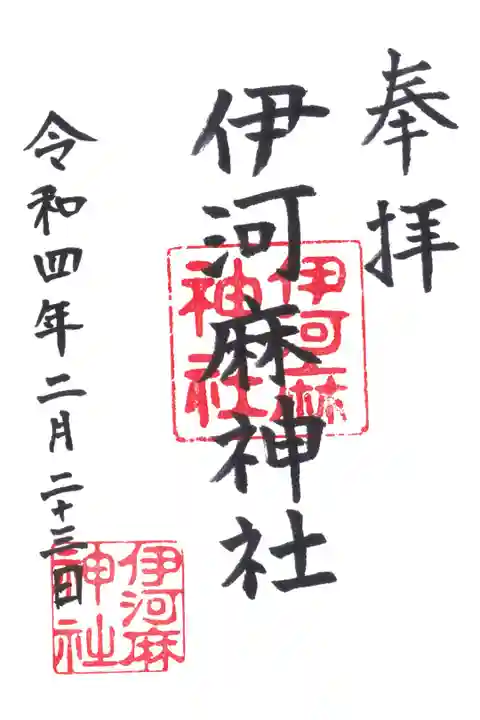 奉拝
伊河麻神社
伊河麻
神社
令和四年二月二十三日
伊河麻
神社